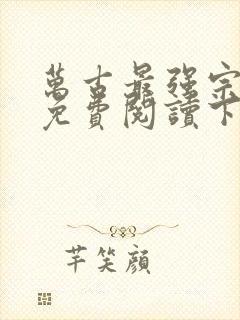 萬古最強宗
免費閱讀下
芊笑顏